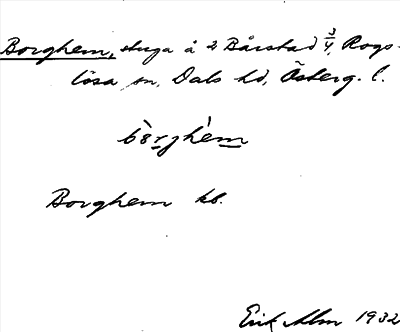 Borghem, stuga å 2 Bårstad 3/4, Rogs-
lösa sn, Dals hd, Österg. l.
bòrghèm
Borghem kb.
Erik Alm 1932